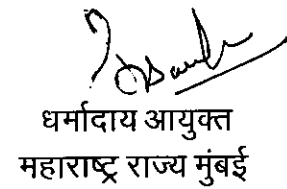 धर्मादाय आयुक्त
महाराष्ट्र राज्य मुंबई